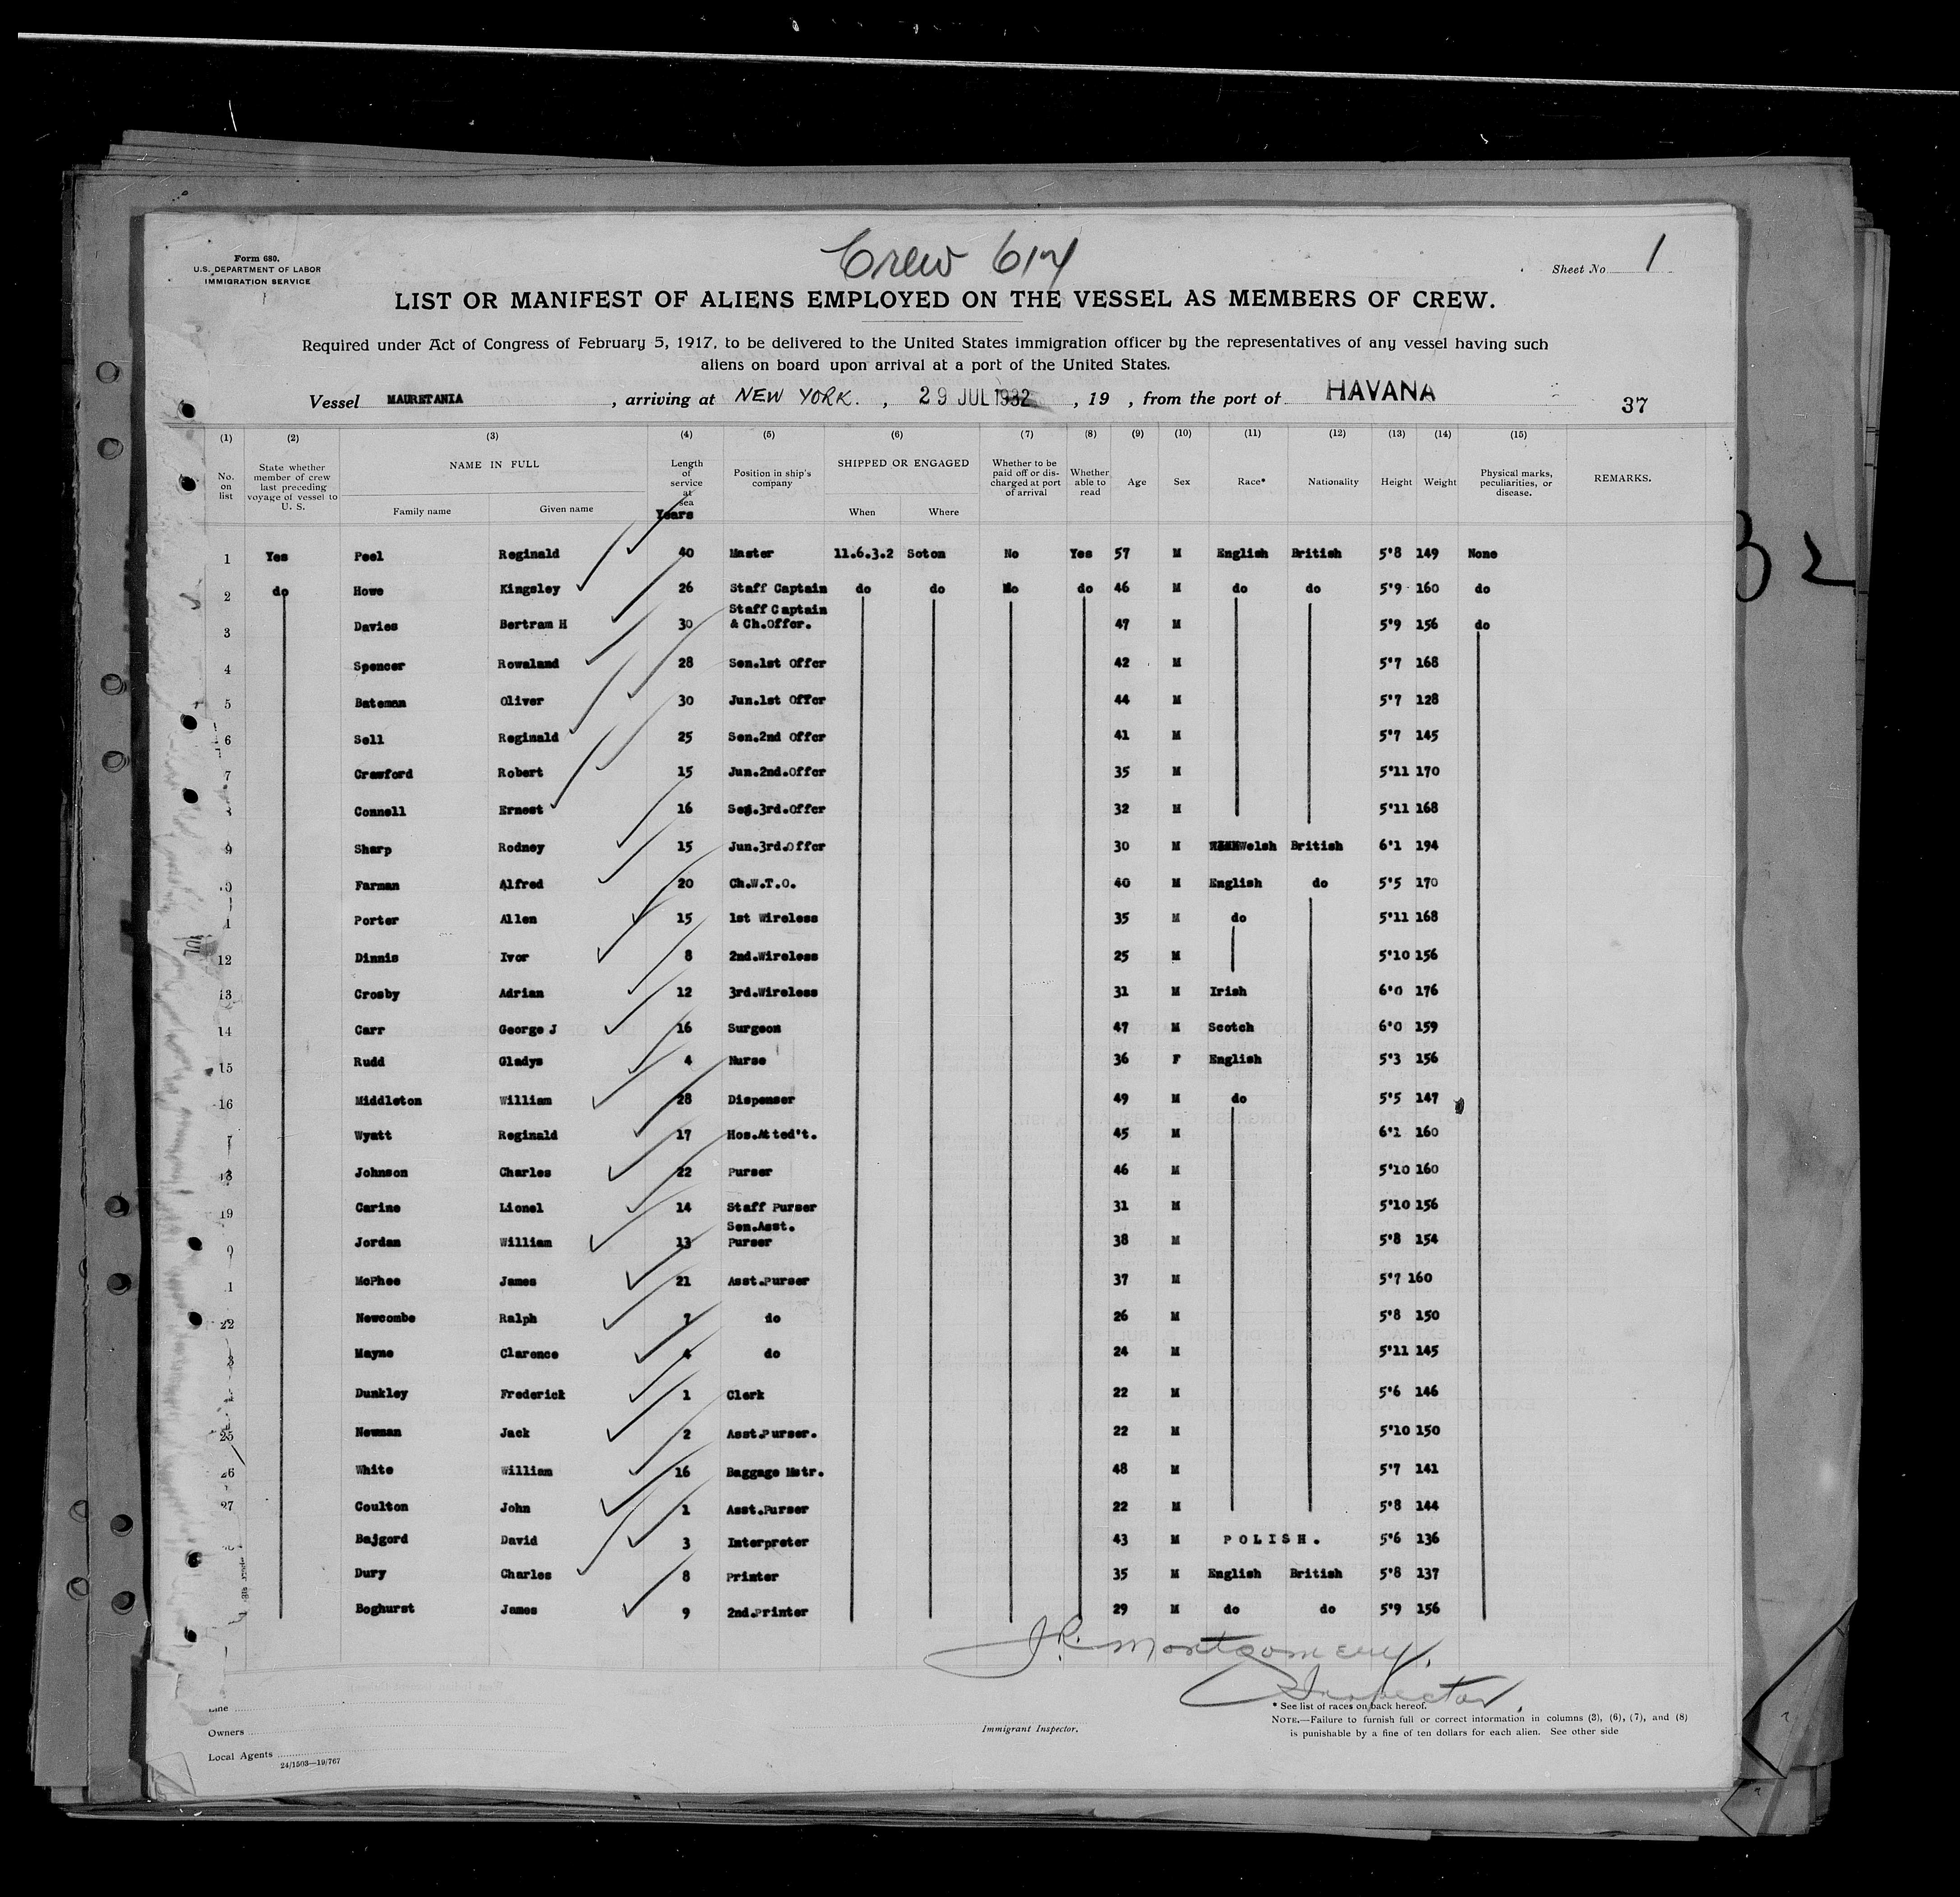 Crew 614
Form 680.
U.S. DEPARTMENT OF LABOR
IMMIGRATION SERVICE
Sheet No 1
LIST OR MANIFEST OF ALIENS EMPLOYED ON THE VESSEL AS MEMBERS OF CREW.
Required under Act of Congress of February 5, 1917, to be delivered to the United States immigration officer by the representatives of any vessel having such
aliens on board upon arrival at a port of the United States.
Vessel MAURETANIA, arriving at NEW YORK., 29 JUL 1932, 19 , from the port of HAVANA 37
(1) (2) (3) (4) (5) (6) (7) (8) (9) (10) (11) (12) (13) (14) (15)
No. on list State whether member of crew last preceding voyage of vessel to U. S. NAME IN FULL Family name Given name Length of service at sea Years Position in ship's company SHIPPED OR ENGAGED When Where Whether to be paid off or discharged at port of arrival Whether able to read Age Sex Race* Nationality Height Weight Physical marks, peculiarities, or disease. REMARKS.
1 Yes Peel Reginald 40 Master 11.6.3.2 Soton No Yes 57 M English British 5'8 149 None
2 do Howe Kingsley 26 Staff Captain do do No do 46 M do do 5'9 160 do
3 Davies Bertram H 30 Staff Captain & Ch.Offer. 47 M 5'9 156 do
4 Spencer Rowaland 28 Sen.1st Offer 42 M 5'7 168
5 Bateman Oliver 30 Jun.1st Offer 44 M 5'7 128
6 Sell Reginald 25 Sen.2nd Offer 41 M 5'7 145
7 Crawford Robert 15 Jun.2nd.Offer 35 M 5'11 170
Connell Ernest 16 Sen.3rd.Offer 32 M 5'11 168
9 Sharp Rodney 15 Jun.3rd.Offer 30 M Welsh British 6'1 194
Farman Alfred 20 Ch.W.T.O. 40 M English do 5'5 170
1 Porter Allen 15 1st Wireless 35 M do 5'11 168
12 Dinnis Ivor 8 2nd.Wireless 25 M 5'10 156
13 Crosby Adrian 12 3rd.Wireless 31 M Irish 6'0 176
14 Carr George J 16 Surgeon 47 M Scotch 6'0 159
15 Rudd Gladys 4 Nurse 36 F English 5'3 156
16 Middleton William 28 Dispenser 49 M do 5'5 147
7 Wyatt Reginald 17 Hos.Atted't. 45 M 6'1 160
18 Johnson Charles 22 Purser 46 M 5'10 160
19 Carine Lionel 14 Staff Purser 31 M 5'10 156
Jordan William 13 Sen.Asst. Purser 38 M 5'8 154
1 McPhee James 21 Asst.Purser 37 M 5'7 160
22 Newcombe Ralph 7 do 26 M 5'8 150
Mayne Clarence 4 do 24 M 5'11 145
Dunkley Frederick 1 Clerk 22 M 5'6 146
25 Newman Jack 2 Asst.Purser. 22 M 5'10 150
26 White William 16 Baggage Mstr. 48 M 5'7 141
27 Coulton John 1 Asst.Purser 22 M 5'8 144
Bajgord David 3 Interpreter 43 M POLISH. 5'6 136
Dury Charles 8 Printer 35 M English British 5'8 137
Boghurst James 9 2nd.Printer 29 M do do 5'9 156
J.R. Montgomery.
Inspector.
Line
Owners
Local Agents
24/1503—19/767
Immigrant Inspector.
* See list of races on back hereof.
NOTE.—Failure to furnish full or correct information in columns (3), (6), (7), and (8)
is punishable by a fine of ten dollars for each alien. See other side